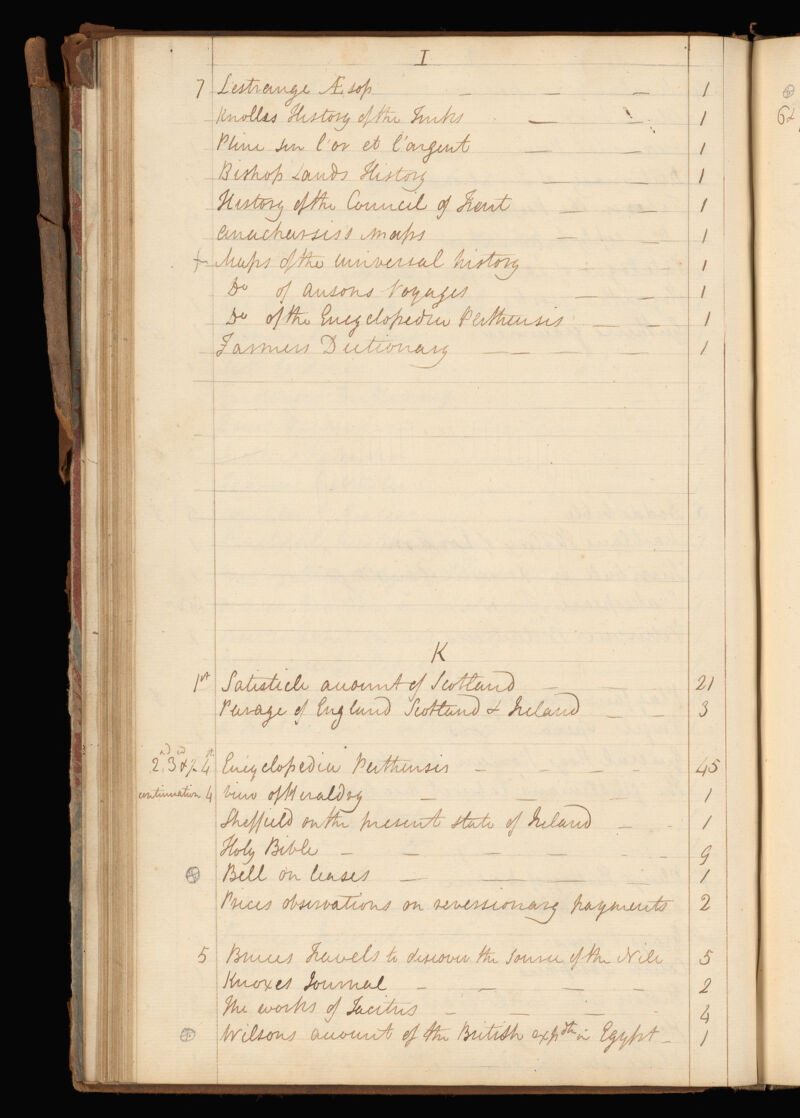 I
7 Lestrange Æsop — — — 1
Knolles History of the Turks — — 1
Pline sur l'or et l'argent — — 1
Bishop Lauds History — — 1
History of the Council of Trent — — 1
Anacharsis's Maps — — 1
+ Maps of the universal history 1
Do of Ansons Voyages — — 1
Do of the Encyclopedia Perthensis — — 1
Farmers Dictionary — — — 1
K
1st Satisticle account of Scotland — — — 21
Parage of England Scotland & Ireland — — 3
2nd 3rd & pt 4 Encyclopedia Perthensis — — — — 45
continuation 4 view of Heraldry — — — — 1
Sheffield on the present state of Ireland — - 1
Holy Bible — — — — - - 9
Bell on leases — — — — 1
Prices observations on reversionary payments 2
5 Bruces Travels to discover the Source of the Nile 5
Knoxes Journal — — — — 2
The works of Tacitus — — — - 4
Wilsons account of the British expdth in Egypt - 1
62